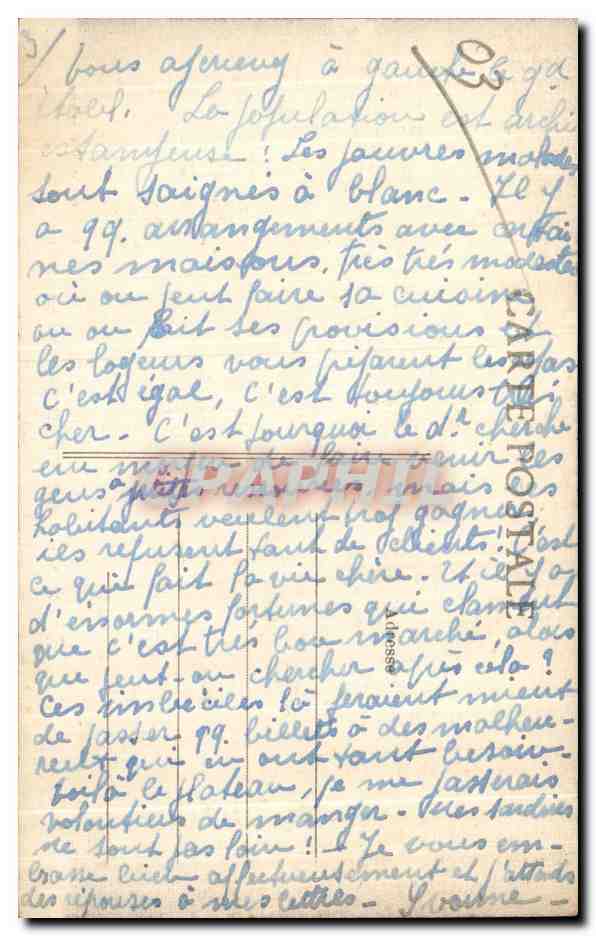 3/ vous apercevez à gauche le gd
hôtel. La population est archi
estampeuse ! Les pauvres malades
sont saignés à blanc - Il y
a qq. arrangements avec certai
nes maisons, très très modestes
où on peut faire sa cuisine
ou on fait ses provisions et
les logeurs vous préparent les
c'est égal, c'est toujours très
cher - C'est pourquoi le dr. cherche
un moyen de faire venir des
gens à petites mais les
habitants veulent trop gagner
ils refusent tant de clients ! c'est
ce qui fait la vie chère. Et il y a
d'énormes fortunes qui clament
que c'est très bon marché, alors
que peut-on chercher après cela ?
Ces imbéciles là feraient mieux
de passer qq. billets à des malheu-
reux qui en ont tant besoin -
Voilà le plateau, je me passerais
volontiers de manger - Mes sardines
ne sont pas loin ! - Je vous em-
brasse bien affectueusement et j'attends
des réponses à mes lettres - Yvonne -
03
CARTE POSTALE
Adresse
CPAPHIL